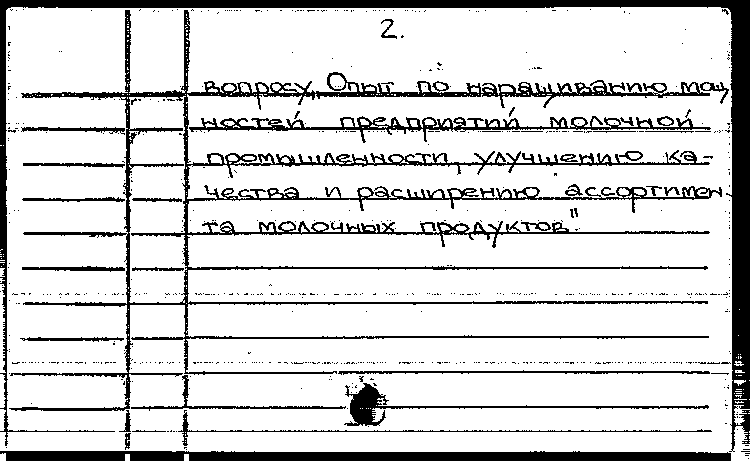 2.
вопросу „Опыт по наращиванию мощ
ностей предприятий молочной
промышленности, улучшению ка-
чества и расширению ассортимен-
та молочных продуктов."